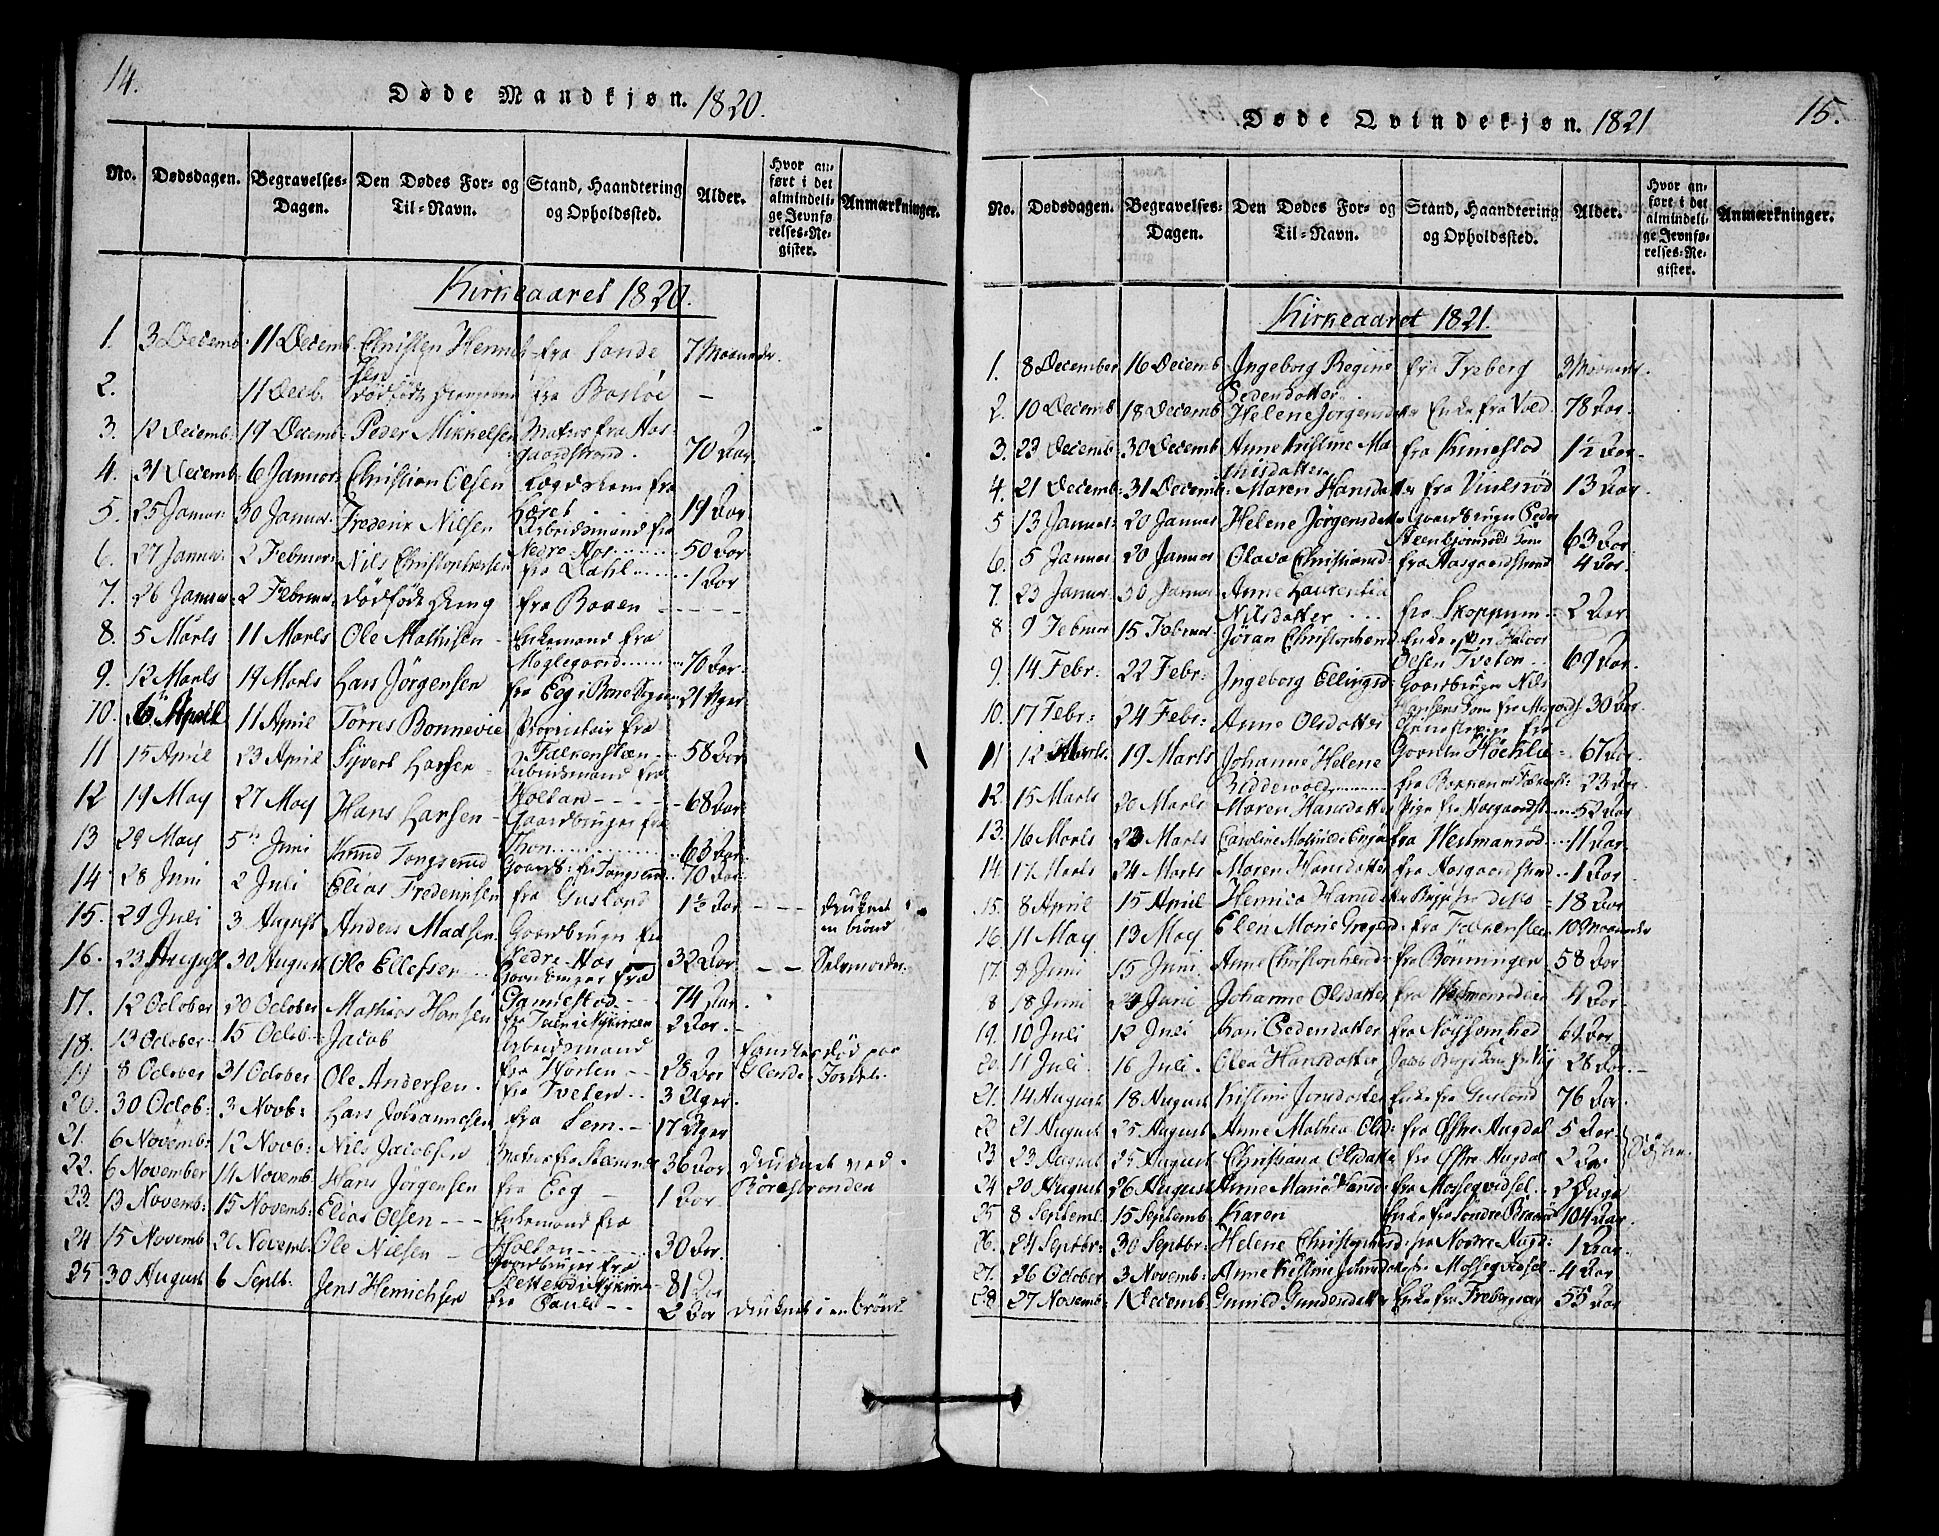 14.
Døde Mandkjøn. 1820.
No. Dødsdagen. Begravelses-Dagen. Den Dødes For- og Til-Navn. Stand, Haandtering og Opholdssted. Alder. Hvor anført i det almindelige Jevnførelses-Register. Anmærkninger.
Kirkeaaret 1820.
1. 3 Decemb: 11 Decemb. Christen Henrich- fra Sande 7 Maaneder
2. 11 Decb. dødfødt fra Basløe -
3. 12 Decemb: 19 Decemb: Peder Mikkelsen Matros fra Aas-
gaardstrand. 70 Aar
4. 31 Decemb. 6 Januar: Christian Olsen Logdslem fra
5. 25 Januar. 30 Januar. Frederik Nilsen 19 Aar
Arbeidsmand fra
6. 27 Januar. 2 Februar: Nils Christophersen Nedre Aas 50 Aar
fra Dahl 1 Aar
7. 26 Januar. 2 Februar. dødfødt Dreng fra Baaen
8. 5 Marts 11 Marts Ole Mathisen - Enkemand fra
Møglegaard 70 Aar.
9. 12 Marts 14 Marts Lars Jørgensen fra Eeg i Borre Sogn 21 Uger
10. 6 April 11 April Torres Bonnevie Proprietair fra
Falkensteen 58 Aar
11 15 April 23 April Syvert Larsen - Arbeidsmand fra
12 14 May 27 May Hans Larsen - Holtan 68 Aar
Gaardbruger fra
13 29 May 5te Juni Knud Tongserud Thon 63 Aar
14 28 Juni 2 Juli Elias Fredriksen Gaardb: fr: Tongserud 70 Aar
15. 29 Juli 3 August Anders Madsen fra Gusland 1½ Aar druknet i en brønd
16. 23 August 30 August Ole Ellefsen Gaardbruger fra
Nedre Aas 32 Aar Selvmorder
17. 12 October 20 October Mathias Hansen Gaardbruger fra
Gannestad 74 Aar
18. 13 October 15 Octob: Jacob 2 Aar.
19 8 October 31 October Ole Andersen. Arbeidsmand
fra Hørten 28 Aar
20. 30 Octob: 3 Novb: Lars Johannesen fra Tveten 3 Uger.
21. 6 Novemb: 12 Novb: Nils Jacobsen fra Sem 17 Uger
22. 6 November 14 Novemb. Hans Jørgensen Matros fra 36 Aar druknet ved
23. 13 Novemb: 15 Novemb. Elias Olsen fra Eeg - 1 Aar Rørestranden
24 15 Novemb 20 Novemb. Ole Nilsen - Enkemand fra
Holtan 30 Aar.
25 30 August 6 Septb: Jens Henrichsen Gaardbruger fra 81 Aar
2 Aar druknet i en brønd
15.
Døde Qvindekjøn. 1821
No. Dødsdagen. Begravelses-Dagen. Den Dødes For- og Til-Navn. Stand, Haandtering og Opholdssted. Alder. Hvor anført i det almindelige Jevnførelses-Register. Anmærkninger.
Kirkeaaret 1821.
1. 8 December 16 Decemb Ingeborg Regine fra Freberg 3 Maaneder
Pedersdatter
2. 10 Decemb 18 Decemb Helene Jørgensdatter Enke fra Vold 78 Aar.
3. 23 Decemb 30 Decemb Anne Kristine Ma- fra Kimestad 1½ Aar
thisdatter
4. 21 Decemb. 31 Decemb: Maren Hansdatter fra 13 Aar
5 13 Januar: 20 Januar Helene Jørgensdatter Gaardbruger Peder
63 Aar.
6. 5 Januar 20 Januar Olava Christiansd fra Aasgaardstrand 4 Aar.
7. 23 Januar. 30 Januar Anne Laurentia
Nilsdatter fra Skoppum 2 Aar
8 9 Februar 15 Februar. Jøran Christophersd Enke efter Halvor
Olsen Tveten 69 Aar.
9. 14 Febr: 22 Febr: Ingeborg Ellingsd Gaardbruger Nils
30 Aar.
10. 17 Febr: 24 Febr: Anne Olsdatter Tjenestepige fra
11 12 Marts. 19 Marts Johanne Helene 67 Aar
Ridderwold fra Bakken v: Falkenst: 23 Aar
12. 15 Marts 20 Marts Maren Hansdatter Pige fra Aasgaardst 52 Aar
13. 16 Marts 23 Marts Caroline Mathilde fra Hesmansrød 11 Aar
14. 17 Marts 24 Marts Maren Hansdatter fra Aasgaardstrand 1 Aar
15. 8 April 15 April Henrica Hansd 18 Aar
16 11 May 13 May Elen Marie Gregersd: fra Falkensteen 10 Maaneder
17. 9 Juni 15 Juni Anne Christophersd fra Bonningen 58 Aar
8 18 Juni 24 Juni Johanne Olsdatter fra 4 Aar
19. 10 Juli 12 Juli Kari Pedersdatter fra Nøysomhed 69 Aar
20. 11 Juli 16 Juli. Olea Hansdatter 28 Aar
21. 14 August 18 August Kristine Jonsdatter Enke fra Gusland 76 Aar.
22 21 August 25 August Anne Mathea Olsd: fra Østre Augdal 5 Aar
23 23 August 25 August Christiana Olsdatter fra Østre Augdal 2 Aar Søstre
24 20 August 26 August Anne Marie Hansd: fra Mossegvidsel 2 Dage
25 8 Septemb. 15 Septemb Karen Enke fra Søndre Braarud 104 Aar.
26. 24 Septbr: 30 Septbr: Helene Christophersd: fra Nordre Augd: 1 Aar.
27. 26 October 3 Novemb: Anne Kistine fra Mossegvidsel 4 Aar
28 27 Novemb: 1 Decemb. Gunild Gundersdatter Enke fra Freberg 55 Aar